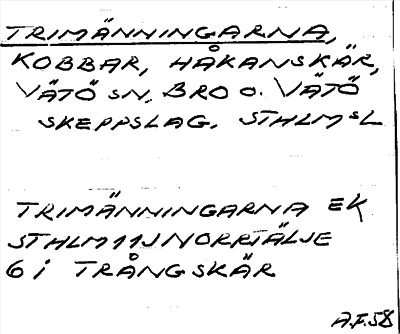 TRIMÄNNINGARNA,
KOBBAR, HÅKANSKÄR,
VÄTÖ SN. BRO O. VÄTÖ
SKEPPSLAG. STHLMSL
TRIMÄNNINGARNA EK
STHLM 11J NORRTÄLJE
6 i TRÅNGSKÄR
A.F.58